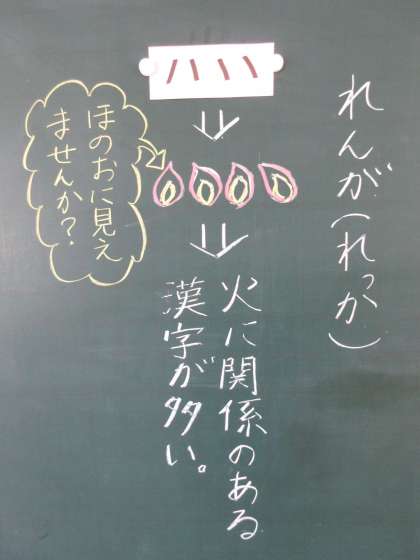 れんが(れっか)
灬
ほのおに見え
ませんか?
火に関係のある
漢字が多い。